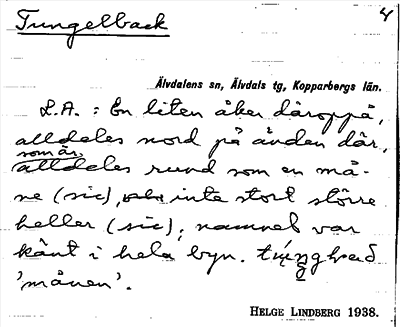 Tungelback
4
Älvdalens sn, Älvdals tg, Kopparbergs län.
L.A. : En liten åker däroppå,
alldeles nord på ändan där,
som är
alldeles rund som en må-
ne (sic), inte stort större
heller (sic), namnet var
känt i hela byn.
'månen'.
HELGE LINDBERG 1938.